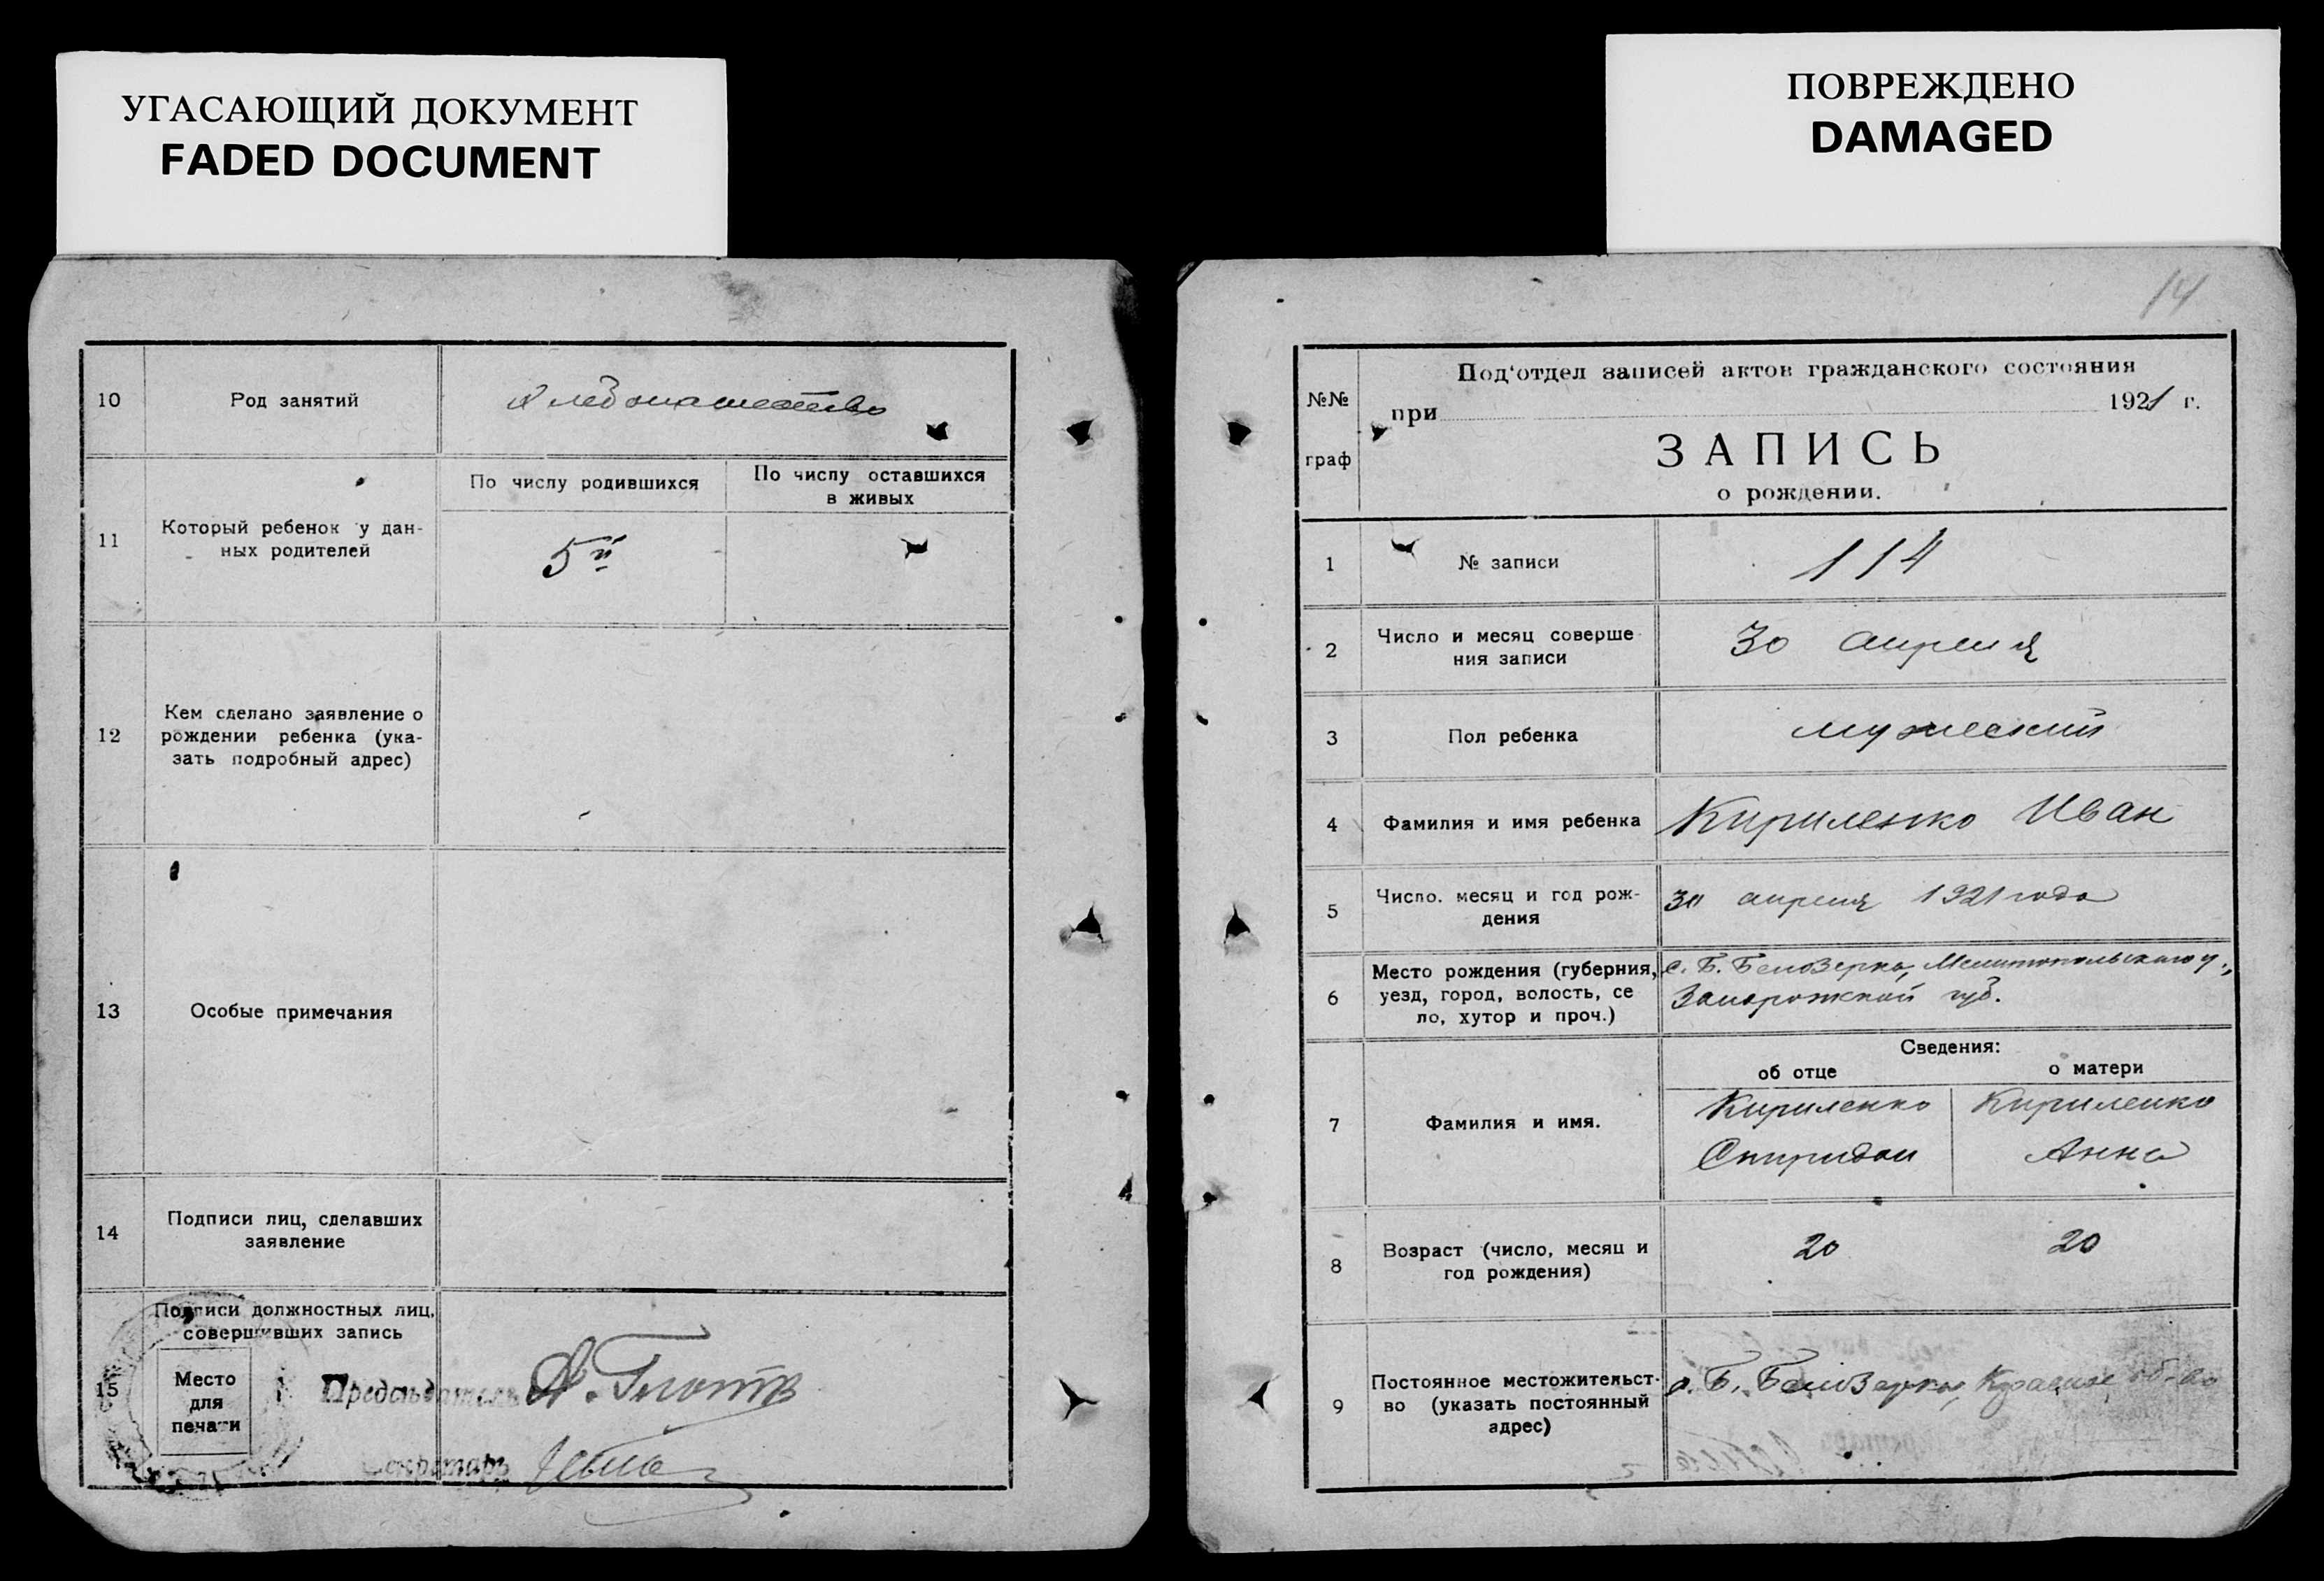 УГАСАЮЩИЙ ДОКУМЕНТ
FADED DOCUMENT
10
Род занятий
Хлебопашество
11
Который ребенок у дан-
ных родителей
По числу родившихся
По числу оставшихся
в живых
5й
12
Кем сделано заявление о
рождении ребенка (ука-
зать подробный адрес)
13
Особые примечания
14
Подписи лиц, сделавших
заявление
15
Подписи должностных лиц,
совершивших запись
Место
для
печати
Председатель
Секретарь
ПОВРЕЖДЕНО
DAMAGED
14
№№
граф
Под'отдел записей актов гражданского состояния
при 1921 г.
ЗАПИСЬ
о рождении.
1
№ записи
114
2
Число и месяц соверше
ния записи
30 апреля
3
Пол ребенка
мужеский
4
Фамилия и имя ребенка
Кириленко Иван
5
Число. месяц и год рож-
дения
30 апреля 1921 года
6
Место рождения (губерния,
уезд, город, волость, се
ло, хутор и проч.)
с. Б. Белозерка, Мелитопольскаго у.,
Запорожской губ.
Сведения:
об отце
о матери
7
Фамилия и имя.
Кириленко
Спиридон
Кириленко
Анна
8
Возраст (число, месяц и
год рождения)
20
20
9
Постоянное местожительст-
во (указать постоянный
адрес)
с. Б. Белозерка, об-во